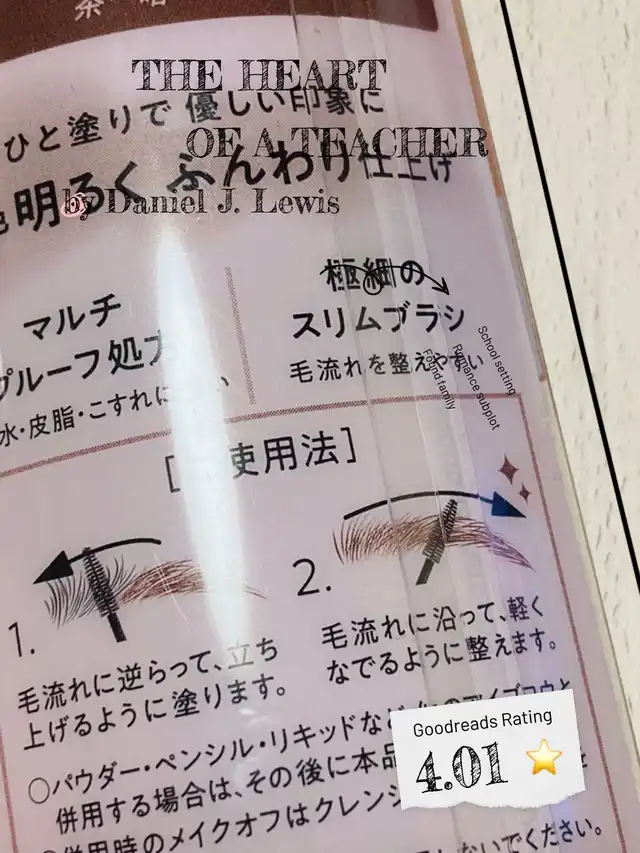 茶
THE HEART
OF A TEACHER
by Daniel J. Lewis
ひと塗りで 優しい印象に
明るく ふんわり仕上げ
マルチ
プルーフ処方
水・皮脂・こすれに
極細の
スリムブラシ
毛流れを整えやすい
School setting
Romance subplot
Found family
使用法]
1.
毛流れに逆らって、立ち
上げるように塗ります。
2.
毛流れに沿って、軽く
なでるように整えます。
○パウダー・ペンシル・リキッドなど
併用する場合は、その後に本品
併用時のメイクオフはクレンジ
ないでください。
Goodreads Rating
4.01 ⭐